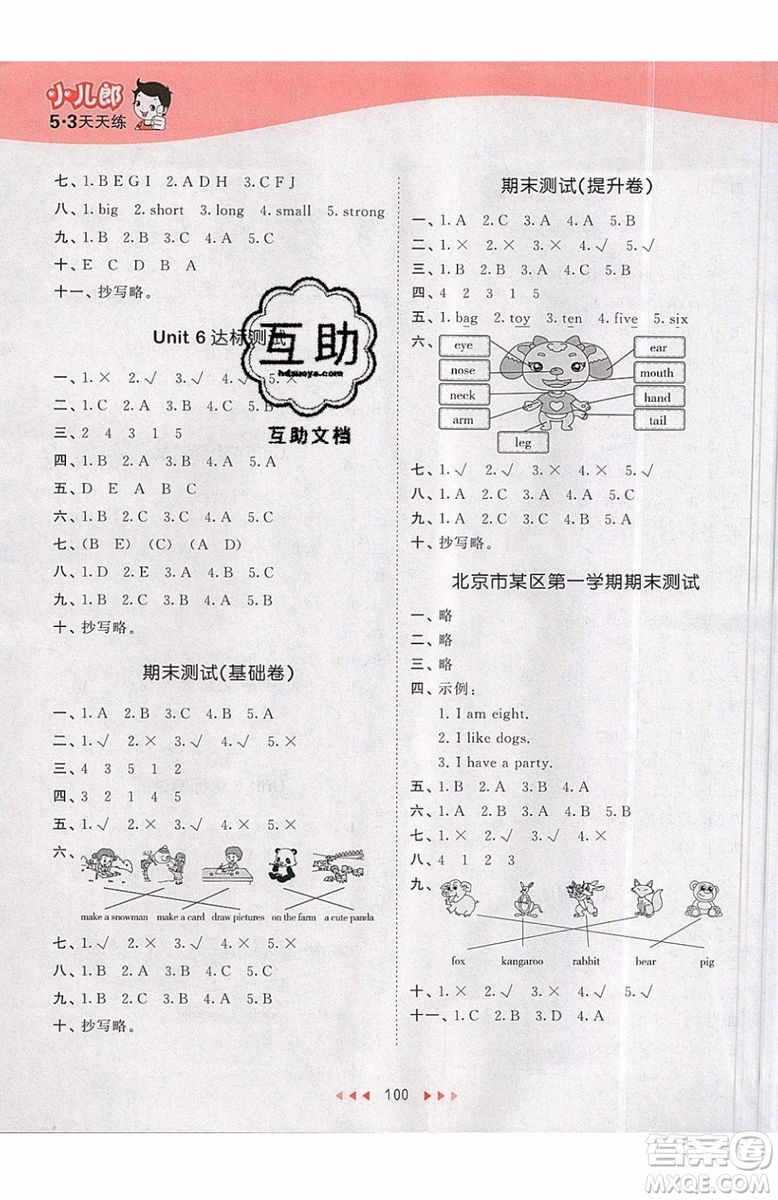 小儿郎
5·3天天练
七、1.B E G I 2.A D H 3.C F J
八、1.big 2.short 3.long 4.small 5.strong
九、1.B 2.A 3.A 4.C
十、E C D B A
十一、抄写略。
Unit 6 达标测试
一、1.× 2.√ 3.√ 4.√ 5.×
二、1.C 2.B 3.A 4.A
三、2 4 3 1 5
四、1.B 2.A 3.B 4.A 5.A
五、D E A B C
六、1.B 2.C 3.B 4.A 5.C
七、(B E) (C) (A D)
八、1.B 2.D 3.C 4.A
九、1.B 2.A 3.C 4.B 5.C
十、抄写略。
期末测试(基础卷)
一、1.A 2.B 3.C 4.B 5.A
二、1.√ 2.× 3.√ 4.√ 5.×
三、4 3 5 1 2
四、3 2 1 5 4
五、1.√ 2.× 3.√ 4.√ 5.×
六、
make a snowman make a card draw pictures on the farm a cute panda
七、1.× 2.× 3.√ 4.× 5.√
八、1.B 2.A 3.B 4.C 5.C
九、1.B 2.A 3.B 4.A 5.C
十、抄写略。
期末测试(提升卷)
一、1.A 2.C 3.A 4.A 5.B
二、1.× 2.× 3.× 4.√ 5.√
三、1.B 2.A 3.B 4.A 5.C
四、4 2 3 1 5
五、1.bag 2.toy 3.ten 4.five 5.six
六、
eye ear
nose mouth
neck hand
arm tail
leg
七、1.√ 2.√ 3.× 4.× 5.√
八、1.A 2.C 3.A 4.A 5.A
九、1.A 2.C 3.B 4.A 5.B
十、抄写略。
北京市某区第一学期期末测试
一、略
二、略
三、略
四、示例：
1. I am eight.
2. I like dogs.
3. I have a party.
五、1.B 2.A 3.B 4.A
六、1.A 2.B 3.B 4.A 5.B
七、1.× 2.√ 3.× 4.√ 5.√
八、4 1 2 3
九、
fox kangaroo rabbit bear pig
十、1.× 2.√ 3.× 4.√ 5.√
十一、1.C 2.B 3.D 4.A
100
互助
hdzuoye.com
互助文档
答案圈
MXQE.COM